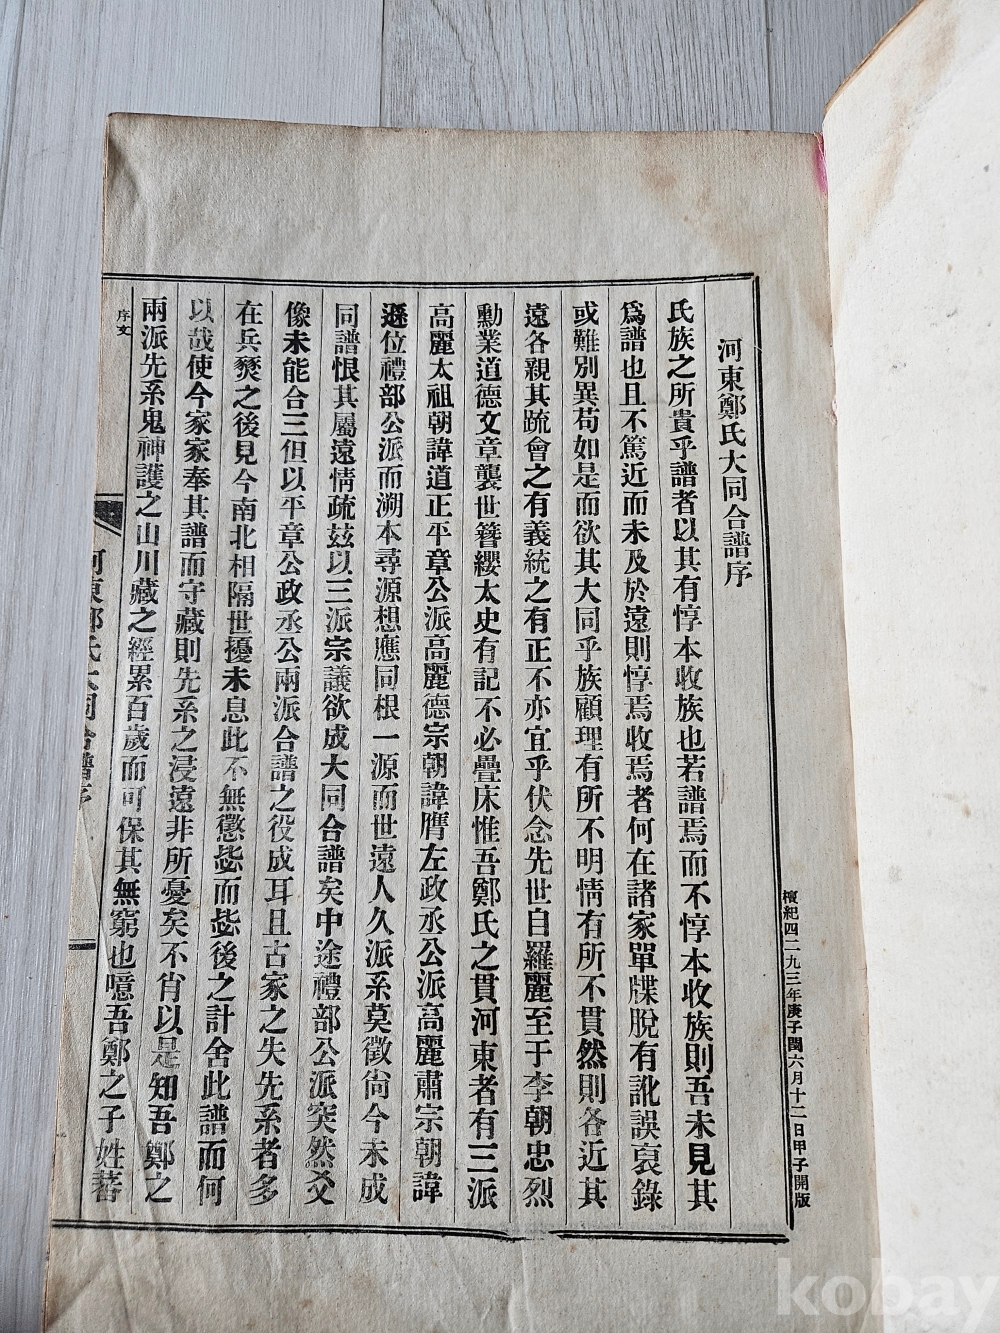 檀紀四二九三年庚子閏六月十二日甲子開版
河東鄭氏大同合譜序
氏族之所貴乎譜者以其有惇本收族也若譜焉而不惇本收族則吾未見其
爲譜也且不篤近而未及於遠則惇焉收焉者何在諸家單牒脫有訛誤裒錄
或難別異苟如是而欲其大同乎族顧理有所不明情有所不貫然則各近其
遠各親其疏會之有義統之有正不亦宜乎伏念先世自羅麗至于李朝忠烈
勳業道德文章襲世簪纓太史有記不必疊床惟吾鄭氏之貫河東者有三派
高麗太祖朝諱道正平章公派高麗德宗朝諱膺左政丞公派高麗肅宗朝諱
遜位禮部公派而溯本尋源想應同根一源而世遠人久派系莫徵尙今未成
同譜恨其屬遠情疏玆以三派宗議欲成大同合譜矣中途禮部公派突然爻
像未能合三但以平章公政丞公兩派合譜之役成耳且古家之失先系者多
在兵燹之後見今南北相隔世擾未息此不無懲毖而毖後之計舍此譜而何
以哉使今家家奉其譜而守藏則先系之浸遠非所憂矣不肖以是知吾鄭之
兩派先系鬼神護之山川藏之經累百歲而可保其無窮也噫吾鄭之子姓蕃
序文
河東鄭氏大同合譜序
kobay